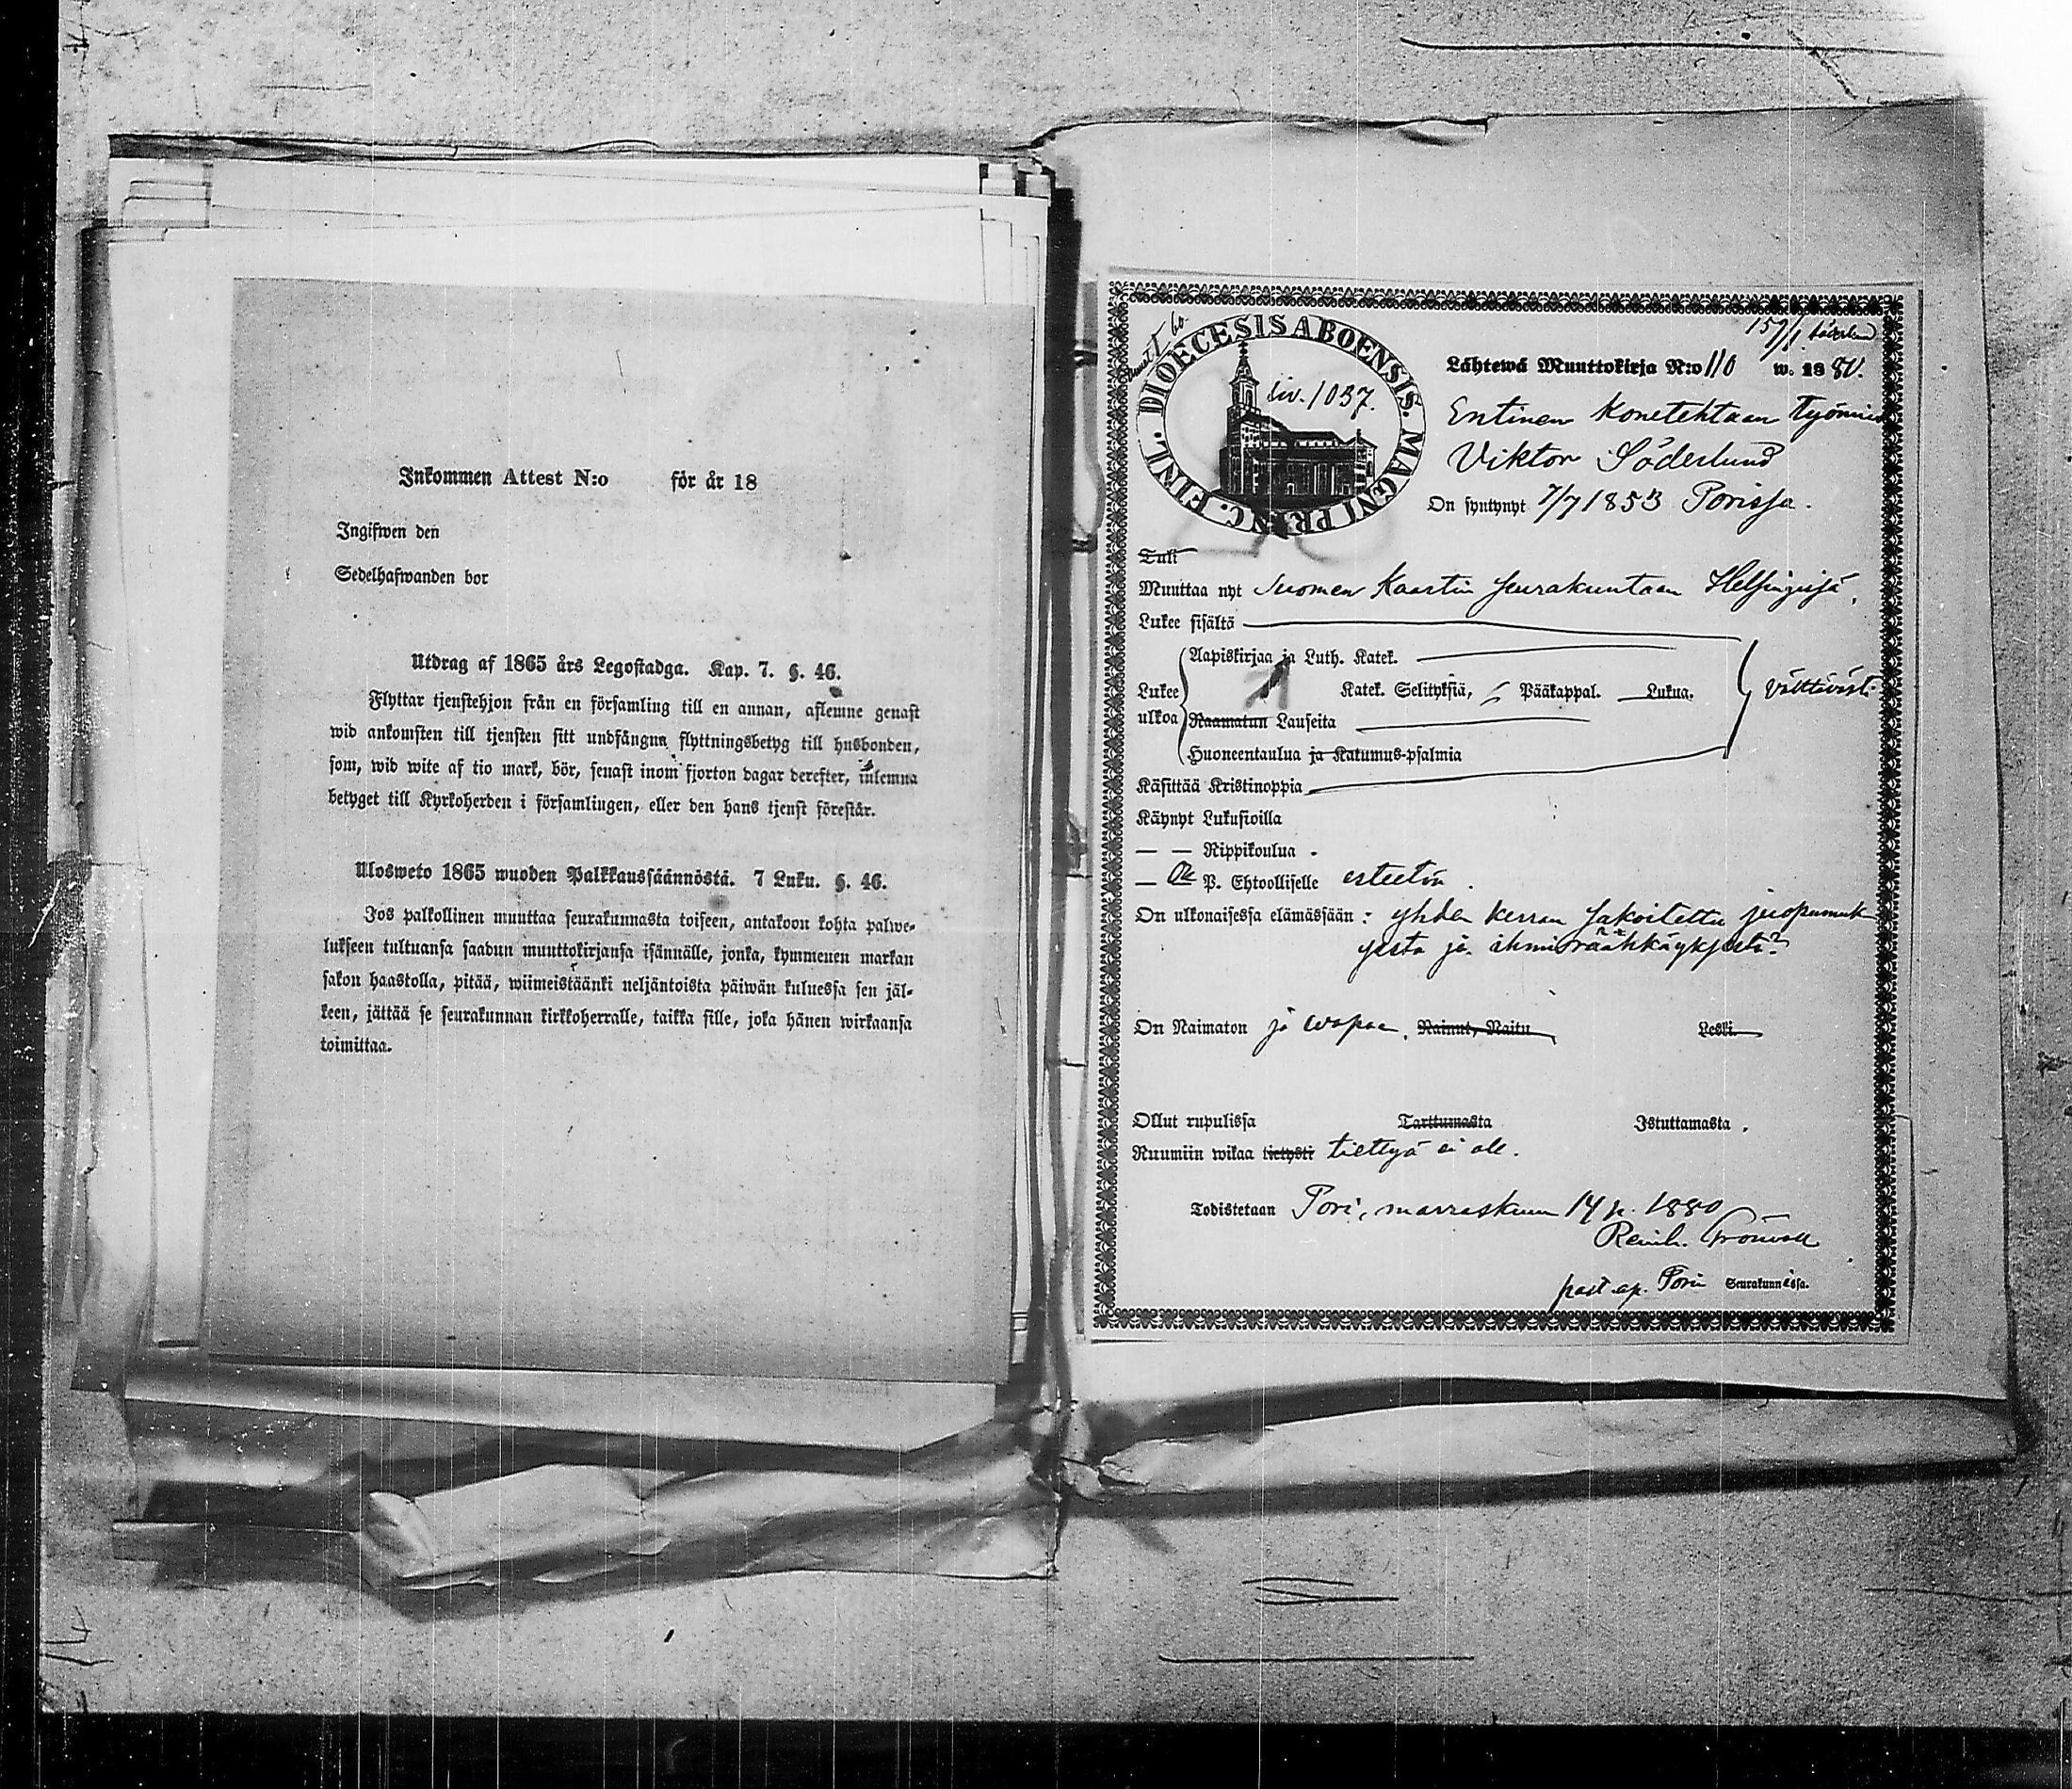 Inkommen Attest N:o för år 18
Ingifwen den
Sedelhafwanden bor
Utdrag af 1865 års Legostadga. Kap. 7. §. 46.
Flyttar tjenstehjon från en församling till en annan, aflemne genast
wid ankomsten till tjensten sitt undfångna flyttningsbetyg till husbonden,
som, wid wite af tio mark, bör, senast inom fjorton dagar derefter, inlemna
betyget till Kyrkoherden i församlingen, eller den hans tjenst förestår.
Ulosweto 1865 wuoden Palkkaussäännöstä. 7 Luku. §. 46.
Jos palkollinen muuttaa seurakunnasta toiseen, antakoon kohta palwe-
lukseen tultuansa saadun muuttokirjansa isännälle, jonka, kymmenen markan
sakon haastolla, pitää, wiimeistäänki neljäntoista päiwän kuluessa sen jäl-
keen, jättää se seurakunnan kirkkoherralle, taikka sille, joka hänen wirkaansa
toimittaa.
DIOECESIS ABOENSIS. MAGNI PRINC. FINL.
1037.
Lähtewä Muuttokirja N:o 110 w. 1880.
Entinen Konetehtaan työmies
Viktor Söderlund
On syntynyt 7/7 1853 Porissa.
Tuli
Muuttaa nyt Suomen Kaartin seurakuntaan Helsingissä.
Lukee sisältä
Lukee ulkoa
Aapiskirjaa ja Luth. Katek.
Katek. Selityksiä, Pääkappal. Lukua.
välttävästi
Raamatun Lauseita
Huoneentaulua ja Katumus-psalmia
Käsittää Kristinoppia
Käynyt Lukusioilla
— — Rippikoulua
— On P. Ehtoolliselle esteetön.
On ulkonaisessa elämässään: yhden kerran sakoitettu juopumuk
sesta ja ihmisrääkkäyksestä
On Naimaton ja wapaa. Nainut, Naitu Leski.
Ollut rupulissa Tarttumasta Istuttamasta.
Ruumiin wikaa tietysti tiettyä ei ole.
Todistetaan Pori, marraskuun 14 p. 1880
Reinh. Grönvall
past. ap. Porin Seurakunnassa.